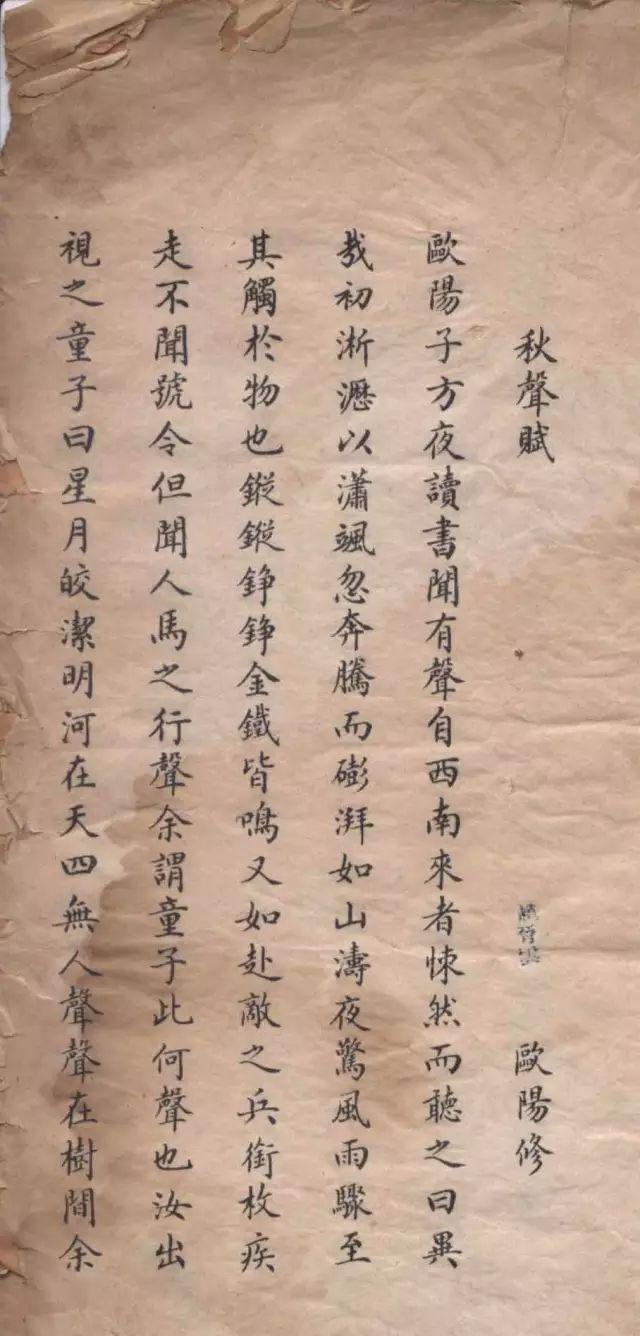 秋聲賦 歐陽修
歐陽子方夜讀書聞有聲自西南來者悚然而聽之曰異
哉初淅瀝以瀟颯忽奔騰而澎湃如山濤夜驚風雨驟至
其觸於物也鏦鏦錚錚金鐵皆鳴又如赴敵之兵銜枚疾
走不聞號令但聞人馬之行聲余謂童子此何聲也汝出
視之童子曰星月皎潔明河在天四無人聲聲在樹間余